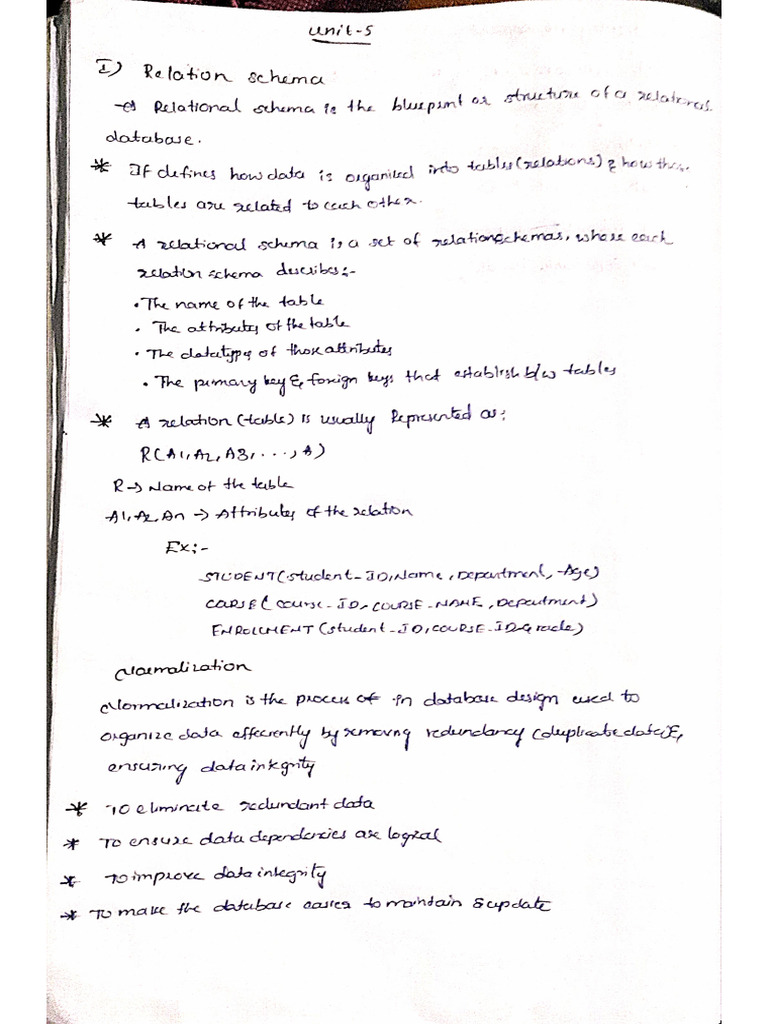 Unit-5
I) Relation schema
→ A Relational schema is the blueprint or structure of a relational
database.
* It defines how data is organized into tables (relations) & how the..
tables are related to each other.
* A relational schema is a set of relationschemas, whose each
relation schema describes:-
• The name of the table
• The attributes of the table
• The datatypes of those attributes
• The primary key & foreign keys that establish b/w tables
* A relation (table) is usually Represented as:
R(A1, A2, A3, ..., A)
R → Name of the table
A1, A2, An → Attributes of the relation
Ex:-
STUDENT(student_ID, Name, Department, Age)
CORSE( course_ID, COURSE_NAME, Department)
ENROLLMENT (student_ID, COURSE_ID, Grade)
Normalization
Normalization is the process of in database design used to
organize data effeciently by removing redundancy (duplicate data) &
ensuring data integrity
* To eliminate redundant data
* To ensure data dependencies are logical
* To improve data integrity
* To make the database easier to maintain & update